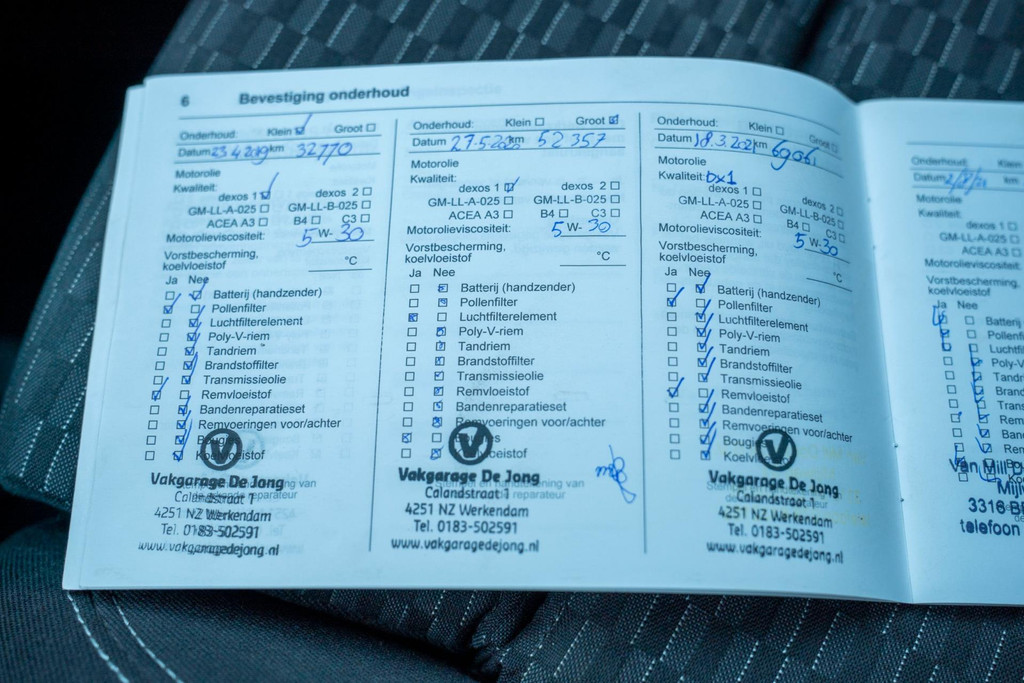 6 Bevestiging onderhoud
Onderhoud: Klein Groot
Datum 23.4.2019 km 32770
Motorolie
Kwaliteit:
dexos 1 dexos 2
GM-LL-A-025 GM-LL-B-025
ACEA A3 B4 C3
Motorolieviscositeit: 5 W- 30
Vorstbescherming,
koelvloeistof °C
Ja Nee
Batterij (handzender)
Pollenfilter
Luchtfilterelement
Poly-V-riem
Tandriem
Brandstoffilter
Transmissieolie
Remvloeistof
Bandenreparatieset
Remvoeringen voor/achter
Bougies
Koelvloeistof
Vakgarage De Jong
Calandstraat 1
4251 NZ Werkendam
Tel. 0183-502591
www.vakgaragedejong.nl
Onderhoud: Klein Groot
Datum 27.5.2020 km 52357
Motorolie
Kwaliteit:
dexos 1 dexos 2
GM-LL-A-025 GM-LL-B-025
ACEA A3 B4 C3
Motorolieviscositeit: 5 W- 30
Vorstbescherming,
koelvloeistof °C
Ja Nee
Batterij (handzender)
Pollenfilter
Luchtfilterelement
Poly-V-riem
Tandriem
Brandstoffilter
Transmissieolie
Remvloeistof
Bandenreparatieset
Remvoeringen voor/achter
Bougies
Koelvloeistof
Vakgarage De Jong
Calandstraat 1
4251 NZ Werkendam
Tel. 0183-502591
www.vakgaragedejong.nl
Onderhoud: Klein Groot
Datum 18.3.2021 km 69061
Motorolie
Kwaliteit: dx1
dexos 1 dexos 2
GM-LL-A-025 GM-LL-B-025
ACEA A3 B4 C3
Motorolieviscositeit: 5 W- 30
Vorstbescherming,
koelvloeistof °C
Ja Nee
Batterij (handzender)
Pollenfilter
Luchtfilterelement
Poly-V-riem
Tandriem
Brandstoffilter
Transmissieolie
Remvloeistof
Bandenreparatieset
Remvoeringen voor/achter
Bougies
Koelvloeistof
Vakgarage De Jong
Calandstraat 1
4251 NZ Werkendam
Tel. 0183-502591
www.vakgaragedejong.nl
Onderhoud: Klein
Datum km
Motorolie
Kwaliteit:
dexos 1
GM-LL-A-025
ACEA A3
Motorolieviscositeit:
Vorstbescherming,
koelvloeistof
Ja Nee
Batterij
Pollenfi
Luchtfi
Poly-V
Tandri
Brand
Tran
Rem
Ban
Rem
Van Mill
Mijn
3316 B
telefoon